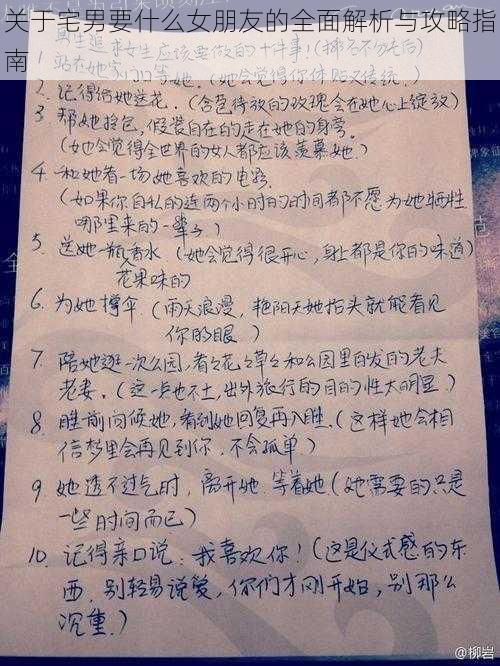 关于宅男要什么女朋友的全面解析与攻略指
南
男生追求女生应该要做的十件事！（排名不分先后）
1. 站在她家门口等她。（她会觉得你体贴又传统。）
2. 记得给她送花。（含苞待放的玫瑰会在她心上绽放）
3 帮她拎包，假装自在的走在她的身旁。
（她会觉得全世界的女人都应该羡慕她。）
4. 和她看一场她喜欢的电影
（如果你自私的连两个小时的时间都不愿为她牺牲
哪里来的一辈子。）
5. 送她一瓶香水（她会觉得很开心，身上都是你的味道）
花果味的
6. 为她撑伞（雨天浪漫，艳阳天她抬头就能看见
你的眼）
7. 陪她逛一次公园，看看花々草々和公园里白发的老夫
老妻。（这一点也不土，出外旅行的目的性太明显）
8. 睡前问候她，看到她回复再入睡。（这样她会相
信梦里会再见到你，不会孤单）
9 她透不过气时，离开她 等着她（她需要的只是
一些时间而已）
10. 记得亲口说：我喜欢你！（这是仪式感的东
西，别轻易说爱，你们才刚开始，别那么
沉重。）
@柳岩